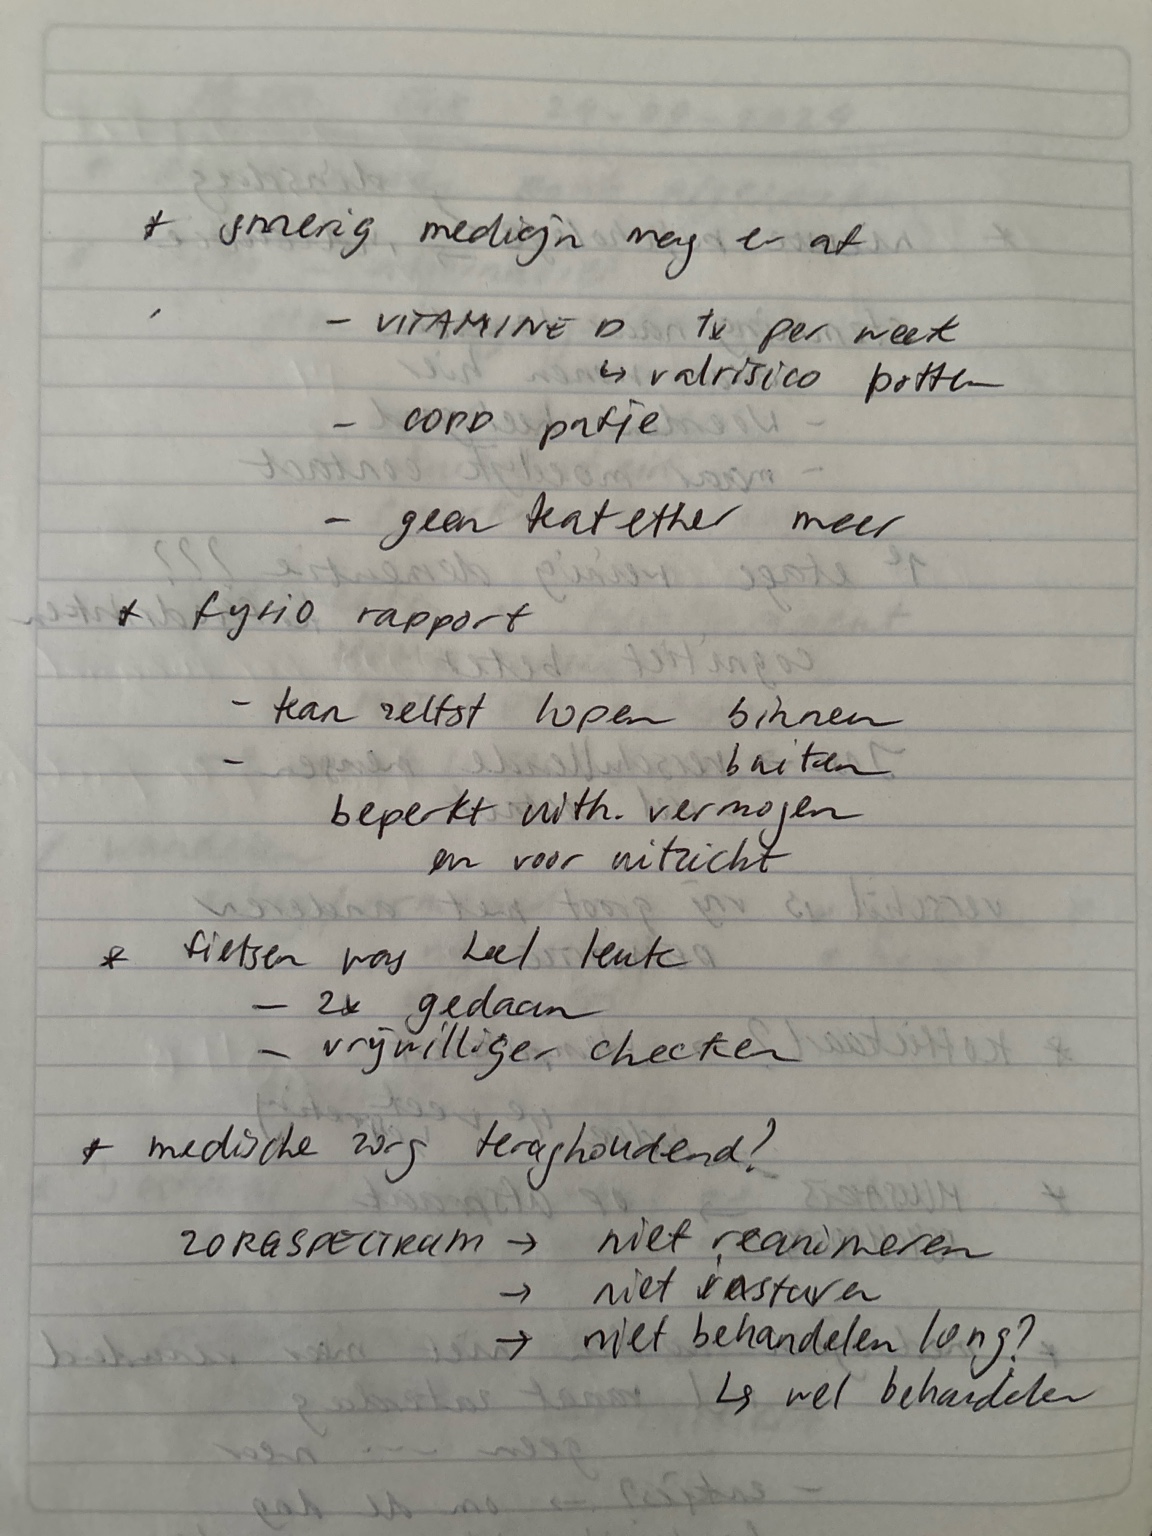 * smerig medicijn mag er af
- VITAMINE D 1x per week
↳ valrisico botten
- COPD pufje
- geen katether meer
* fysio rapport
- kan zelfst lopen binnen
- buiten
beperkt uith. vermogen
en voor uitzicht
* fietsen was heel leuk
- 2x gedaan
- vrijwilliger checken
* medische zorg teraghoudend?
ZORGSPECTRUM → niet reanimeren
→ niet insturen
→ niet behandelen long?
↳ wel behandelen